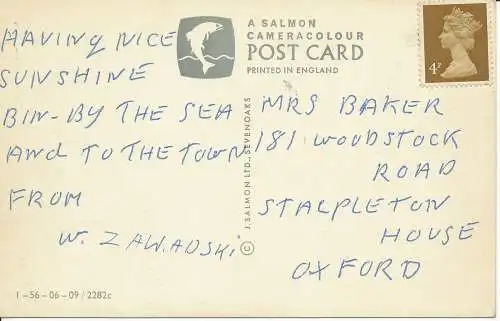 HAVING NICE
SUNSHINE
BIN-BY THE SEA
AND TO THE TOWN
FROM
W. ZAWADSKI
A SALMON
CAMERACOLOUR
POST CARD
PRINTED IN ENGLAND
4P
J. SALMON LTD., SEVENOAKS ©
MRS BAKER
181 WOODSTOCK
ROAD
STALPLETON
HOUSE
OXFORD
1-56-06-09/2282c